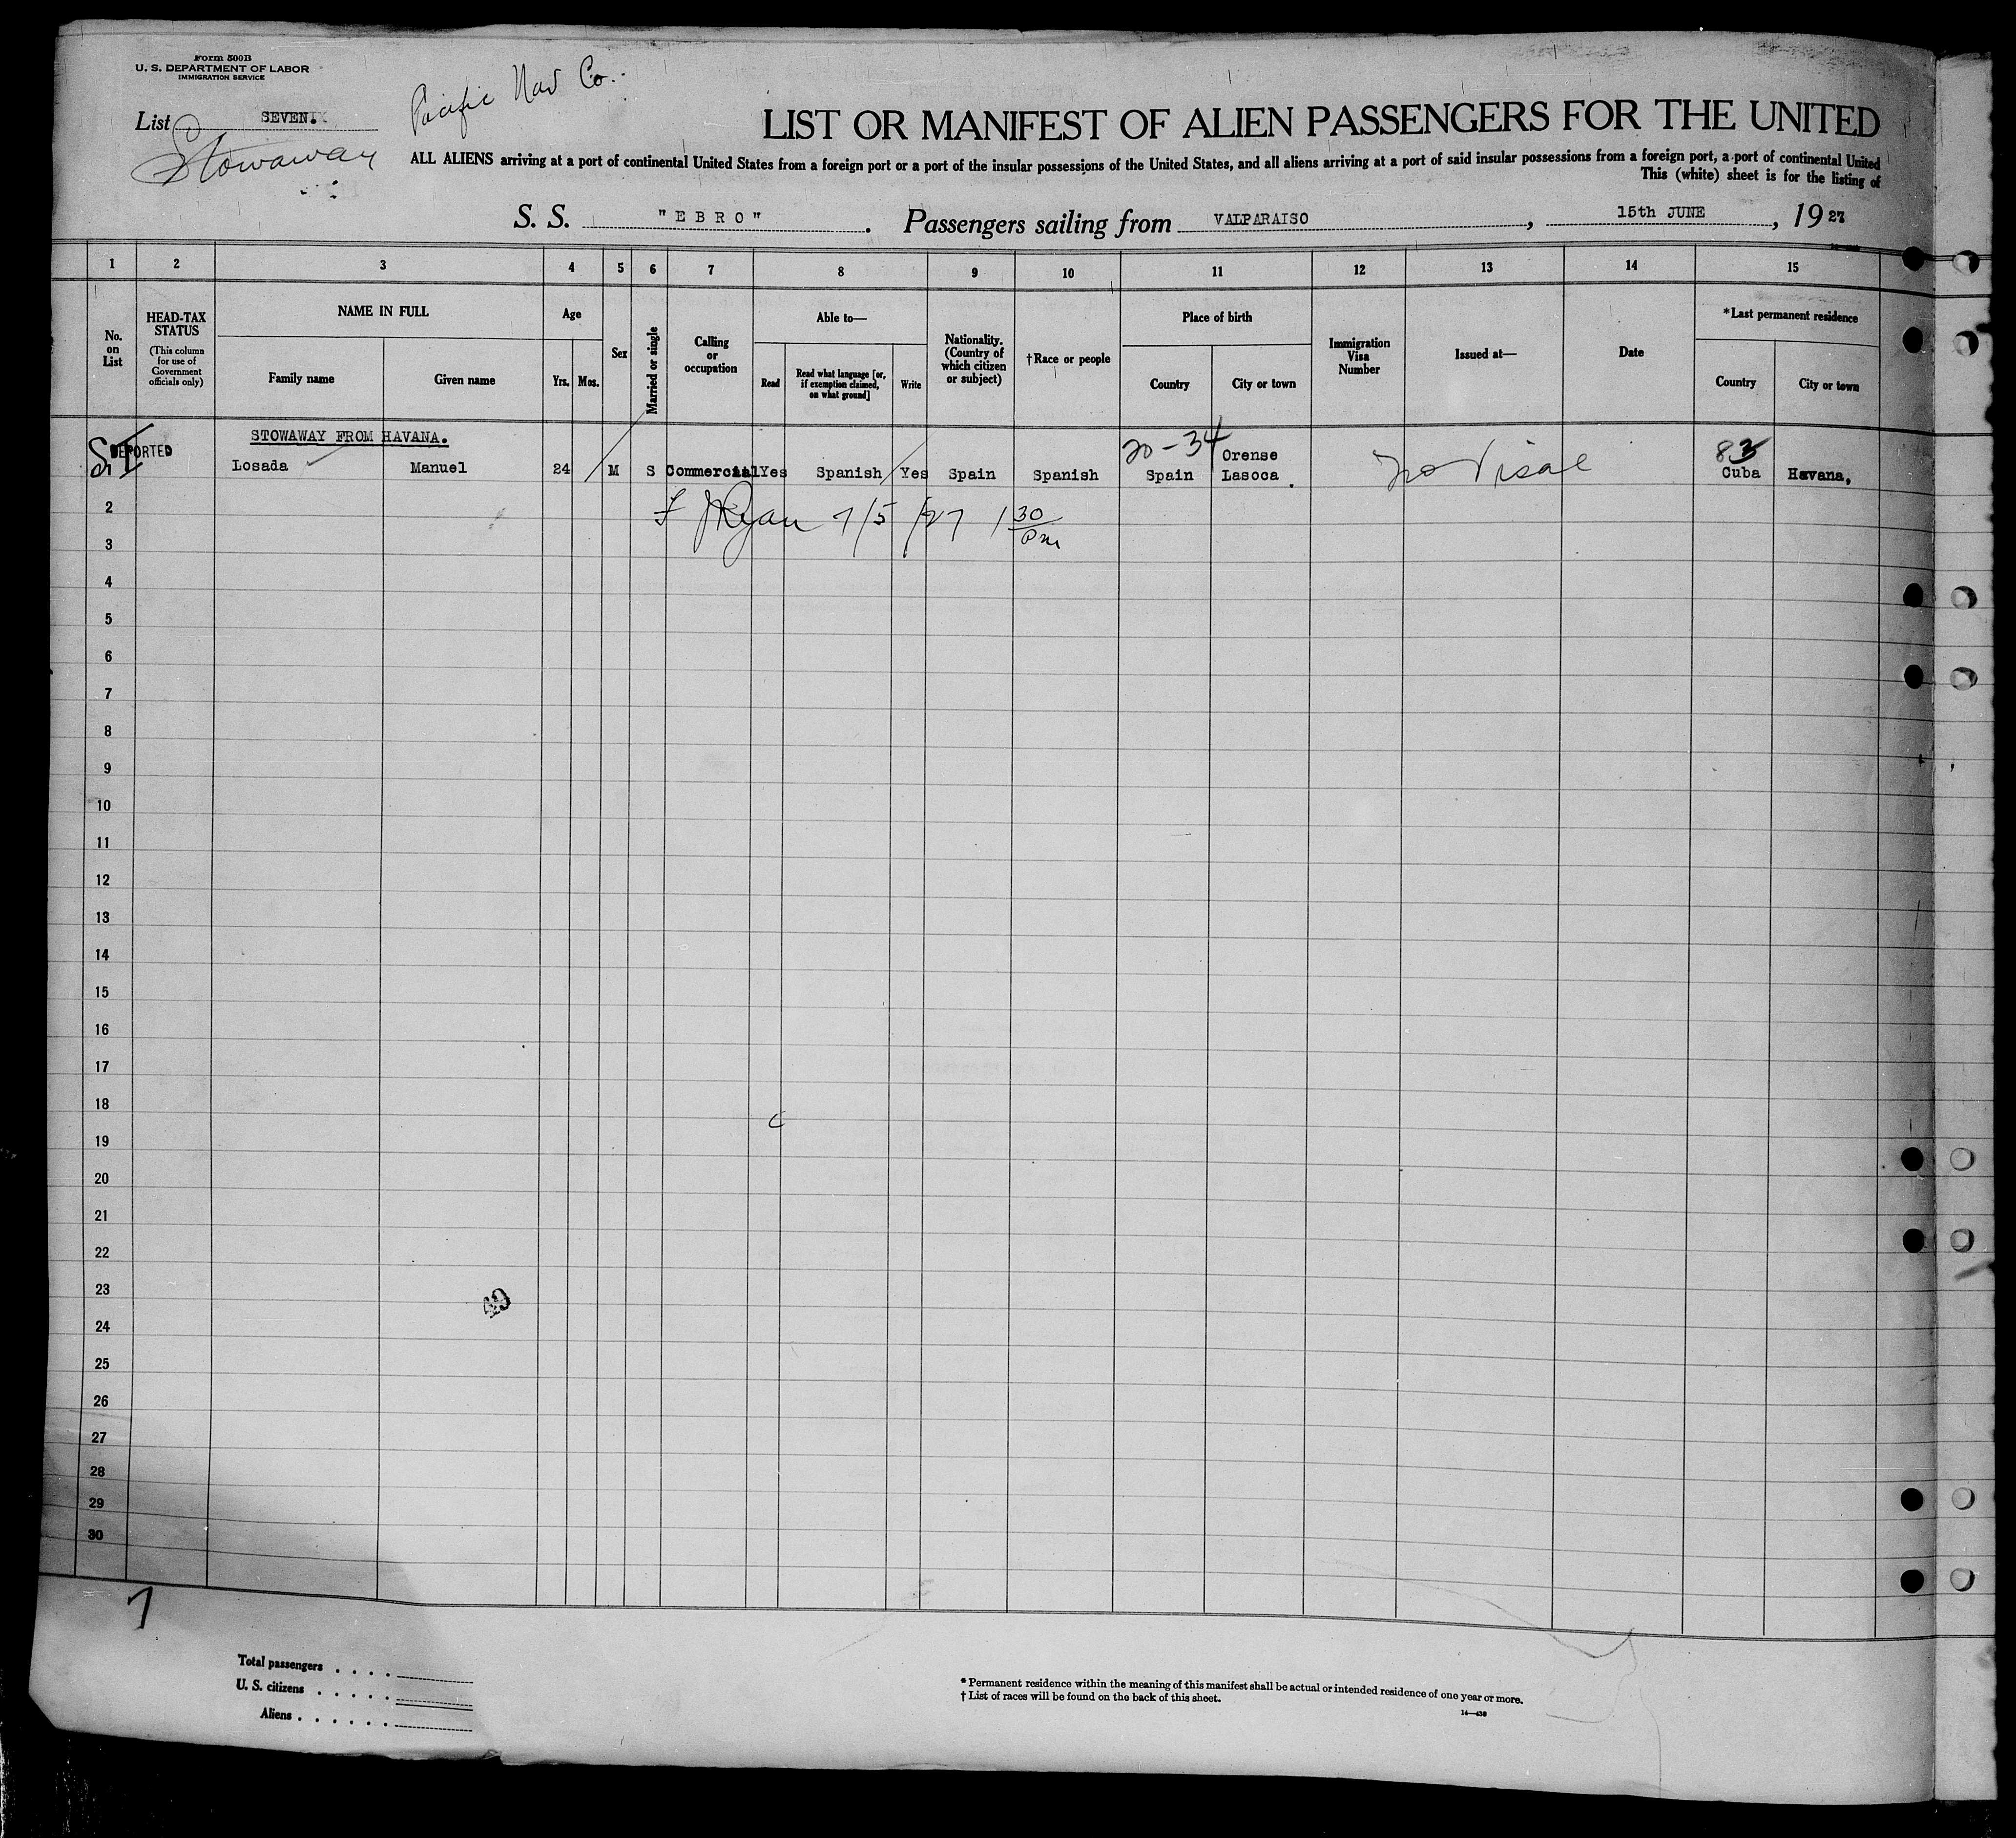 Form 500B
U. S. DEPARTMENT OF LABOR
IMMIGRATION SERVICE
List SEVEN.
Stowaway
Pacific Nav Co.
LIST OR MANIFEST OF ALIEN PASSENGERS FOR THE UNITED
ALL ALIENS arriving at a port of continental United States from a foreign port or a port of the insular possessions of the United States, and all aliens arriving at a port of said insular possessions from a foreign port, a port of continental United
This (white) sheet is for the listing of
S. S. "EBRO". Passengers sailing from VALPARAISO, 15th JUNE, 1927
1 2 3 4 5 6 7 8 9 10 11 12 13 14 15
No. on List
HEAD-TAX STATUS (This column for use of Government officials only)
NAME IN FULL
Family name
Given name
Age
Yrs. Mos.
Sex
Married or single
Calling or occupation
Able to—
Read
Read what language [or, if exemption claimed, on what ground]
Write
Nationality. (Country of which citizen or subject)
†Race or people
Place of birth
Country
City or town
Immigration Visa Number
Issued at—
Date
*Last permanent residence
Country
City or town
STOWAWAY FROM HAVANA.
DEPORTED
S.I.
Losada Manuel 24 M S Commercial Yes Spanish Yes Spain Spanish Spain Orense Lasoca. no Visae Cuba Havana.
20-34
83
F J Ryan 7/5/27 1 30 Pm
2
3
4
5
6
7
8
9
10
11
12
13
14
15
16
17
18
19
20
21
22
23
24
25
26
27
28
29
30
7
Total passengers
U. S. citizens
Aliens
* Permanent residence within the meaning of this manifest shall be actual or intended residence of one year or more.
† List of races will be found on the back of this sheet.
14—430